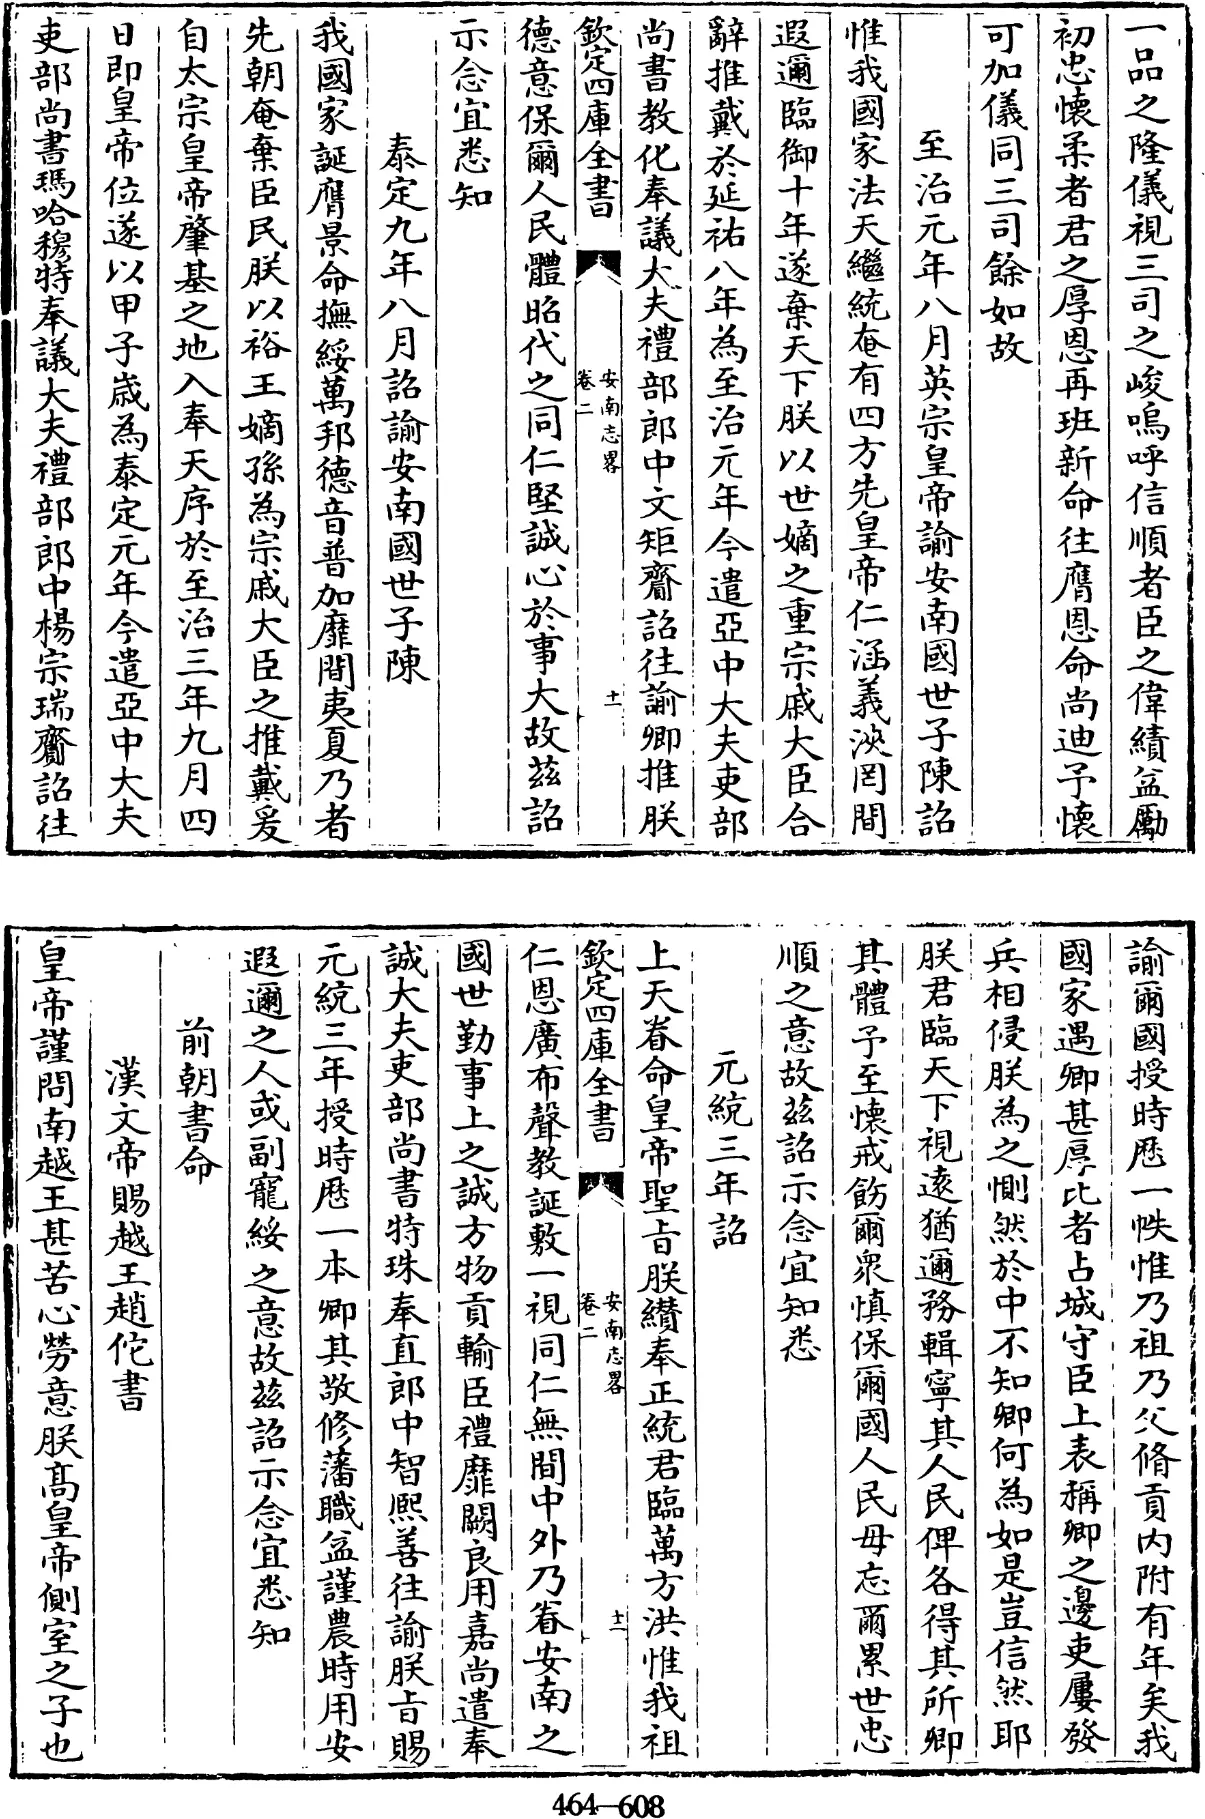 一品之隆儀視三司之峻嗚呼信順者臣之偉績益勵
初忠懷柔者君之厚恩再班新命往膺恩命尚迪予懷
可加儀同三司餘如故
至治元年八月英宗皇帝諭安南國世子陳詔
惟我國家法天繼統奄有四方先皇帝仁涵義浹罔間
遐邇臨御十年遂棄天下朕以世嫡之重宗戚大臣合
辭推戴於延祐八年為至治元年今遣亞中大夫吏部
尚書教化奉議大夫禮部郎中文矩齎詔往諭卿推朕
欽定四庫全書
安南志畧
卷二
十一
德意保爾人民體昭代之同仁堅誠心於事大故茲詔
示念宜悉知
泰定九年八月詔諭安南國世子陳
我國家誕膺景命撫綏萬邦德音普加靡間夷夏乃者
先朝奄棄臣民朕以裕王嫡孫為宗戚大臣之推戴爰
自太宗皇帝肇基之地入奉天序於至治三年九月四
日即皇帝位遂以甲子歳為泰定元年今遣亞中大夫
吏部尚書瑪哈穆特奉議大夫禮部郎中楊宗瑞齎詔往
諭爾國授時厯一帙惟乃祖乃父脩貢内附有年矣我
國家遇卿甚厚比者占城守臣上表稱卿之邊吏屢發
兵相侵朕為之惻然於中不知卿何為如是豈信然耶
朕君臨天下視逺猶邇務輯寧其人民俾各得其所卿
其體予至懷戒飭爾衆慎保爾國人民毋忘爾累世忠
順之意故茲詔示念宜知悉
元統三年詔
上天眷命皇帝聖㫖朕纘奉正統君臨萬方洪惟我祖
欽定四庫全書
安南志畧
卷二
十二
仁恩廣布聲教誕敷一視同仁無間中外乃眷安南之
國世勤事上之誠方物貢輸臣禮靡闕良用嘉尚遣奉
誠大夫吏部尚書特珠奉直郎中智熙善往諭朕㫖賜
元統三年授時厯一本卿其敬修藩職益謹農時用安
遐邇之人或副寵綏之意故茲詔示念宜悉知
前朝書命
漢文帝賜越王趙佗書
皇帝謹問南越王甚苦心勞意朕髙皇帝側室之子也
464-608